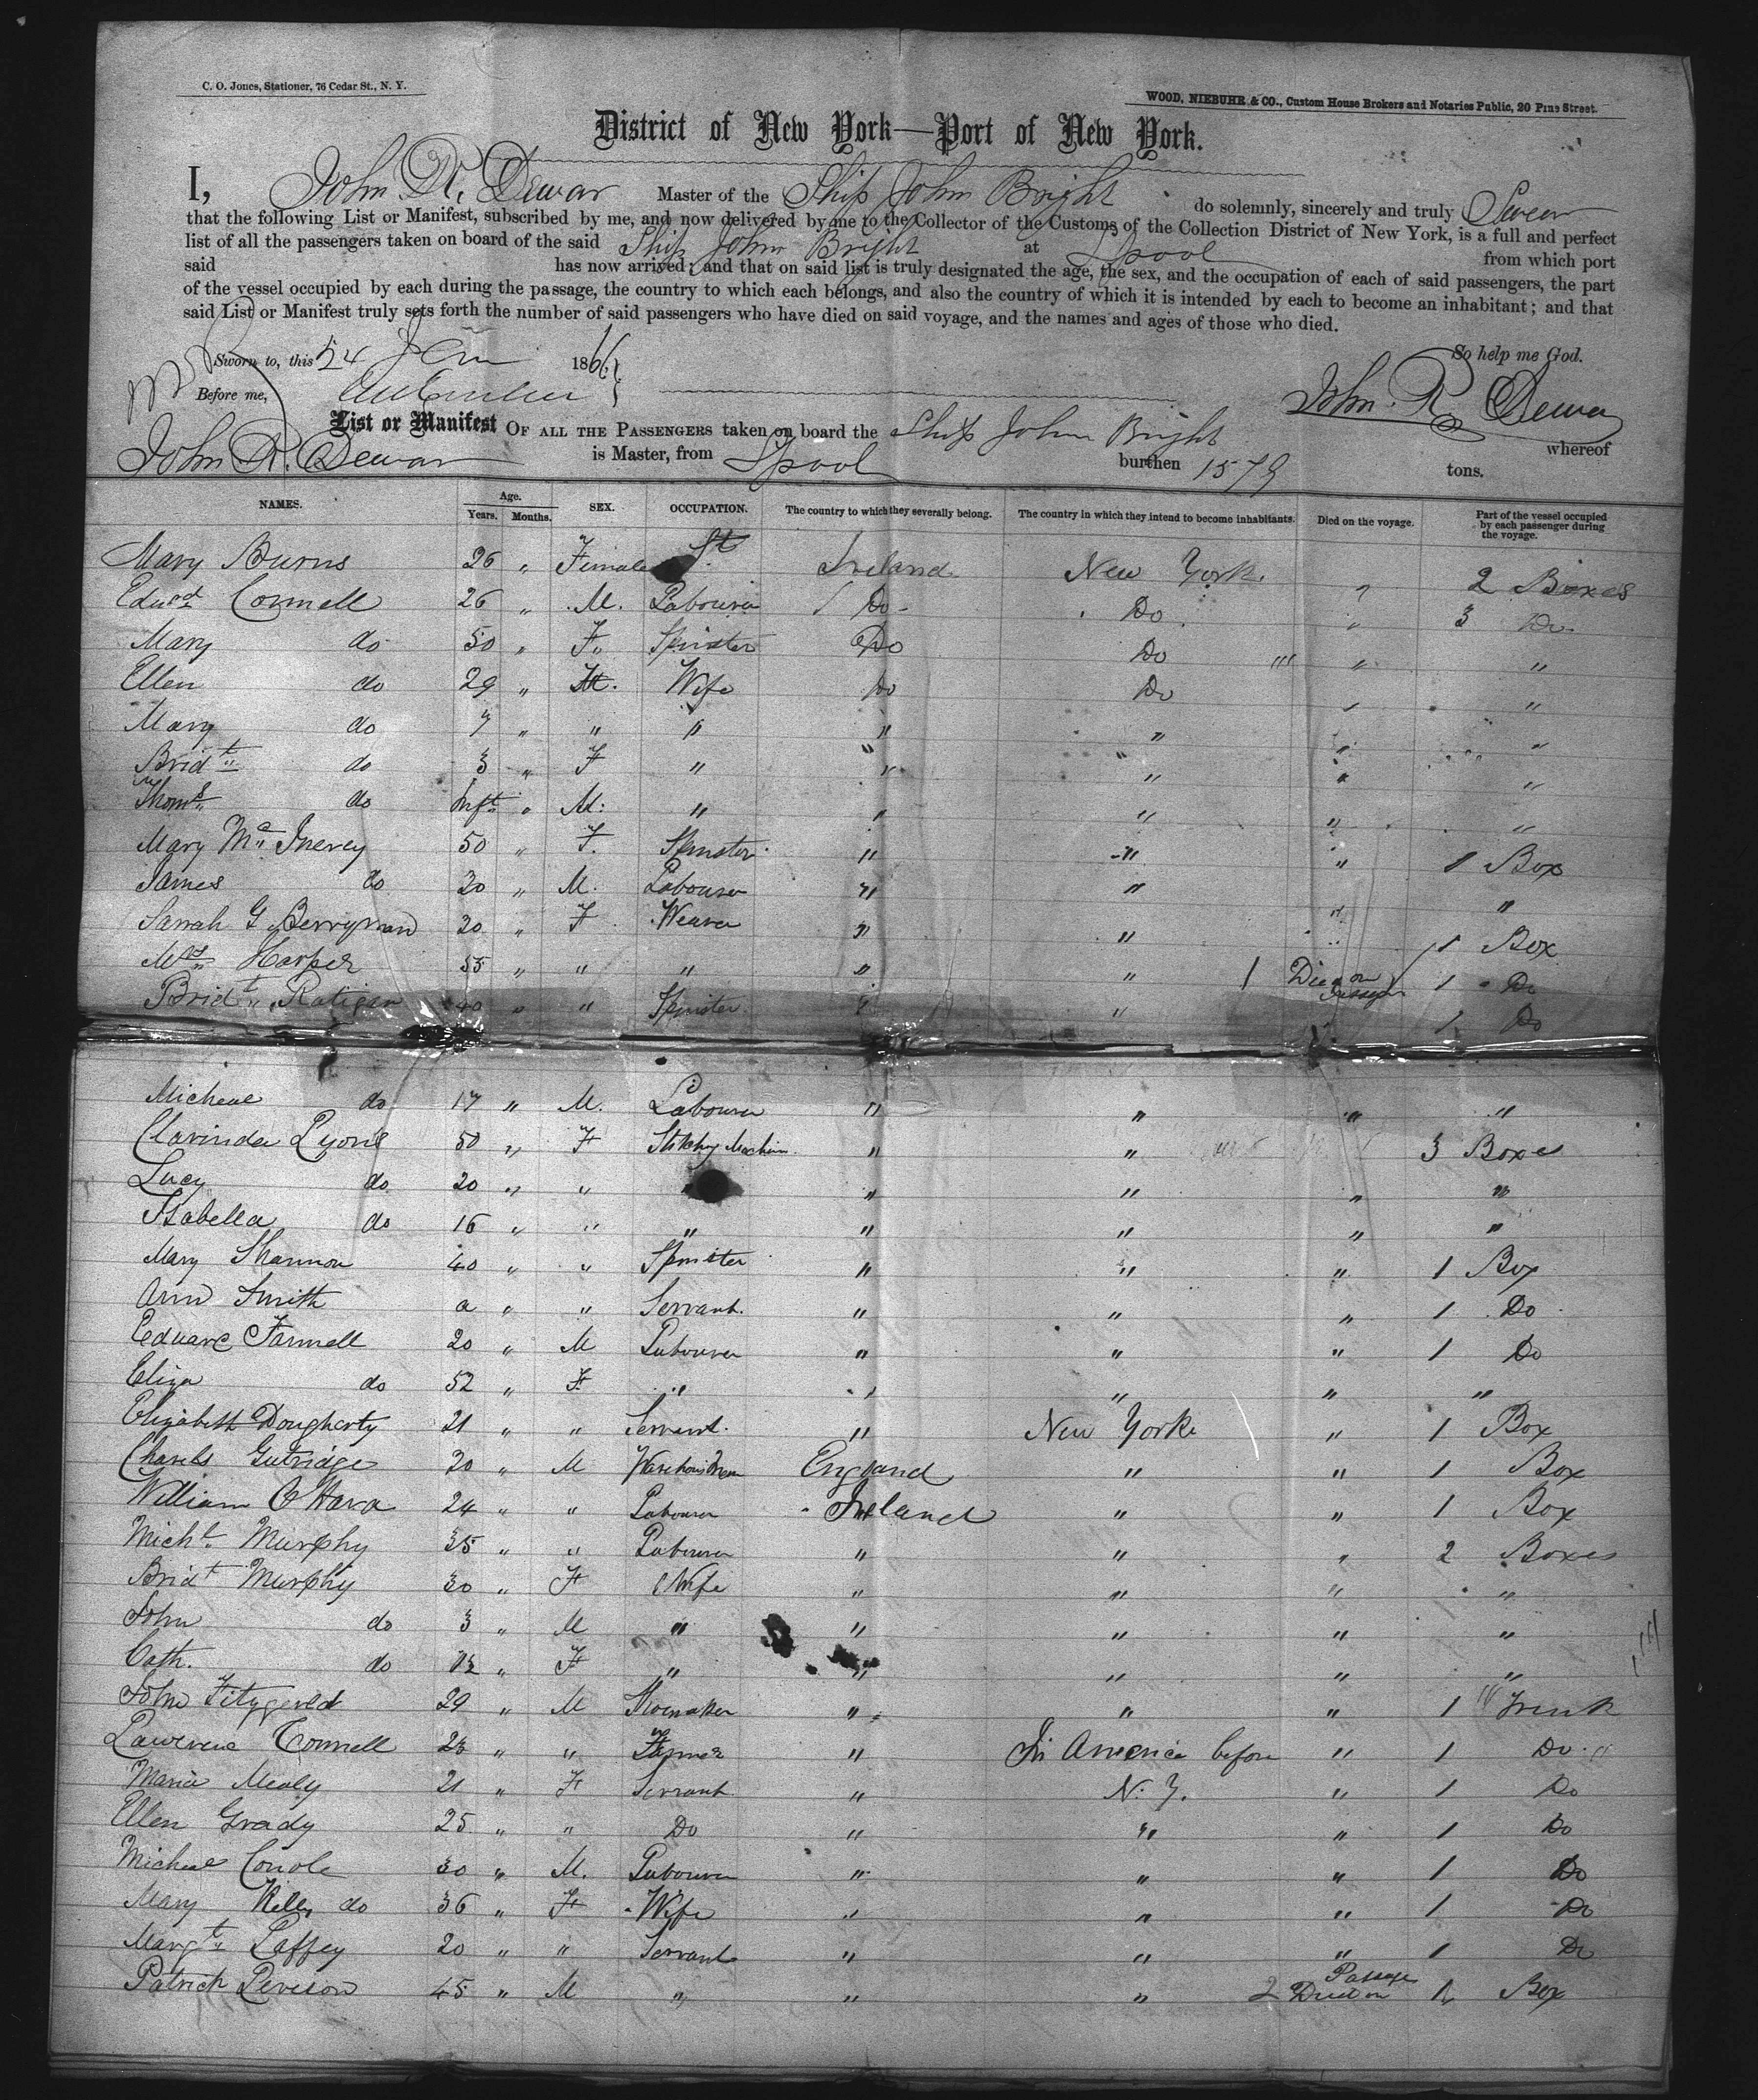 C. O. Jones, Stationer, 76 Cedar St., N. Y.
WOOD, NIEBUHR & CO., Custom House Brokers and Notaries Public, 20 Pine Street.
District of New York—Port of New York.
I, John R. Dewar Master of the Ship John Bright do solemnly, sincerely and truly Swear
that the following List or Manifest, subscribed by me, and now delivered by me to the Collector of the Customs of the Collection District of New York, is a full and perfect
list of all the passengers taken on board of the said Ship John Bright at Lpool from which port
said has now arrived; and that on said list is truly designated the age, the sex, and the occupation of each of said passengers, the part
of the vessel occupied by each during the passage, the country to which each belongs, and also the country of which it is intended by each to become an inhabitant; and that
said List or Manifest truly sets forth the number of said passengers who have died on said voyage, and the names and ages of those who died.
Sworn to, this 24 Jan 1866 So help me God.
Before me, John R. Dewar
List or Manifest OF ALL THE PASSENGERS taken on board the Ship John Bright whereof
John R. Dewar is Master, from Lpool burthen 1579 tons.
NAMES. Age. Years. Months. SEX. OCCUPATION. The country to which they severally belong. The country in which they intend to become inhabitants. Died on the voyage. Part of the vessel occupied by each passenger during the voyage.
Mary Burns 26 " Female St Ireland New York " 2 Boxes
Edwd Connell 26 " M. Labourer Do Do " 3 Do
Mary do 50 " F " Spinster Do Do " "
Ellen do 29 " Wife Do Do " "
Mary do 7 " " " " " " "
Bridt do 3 " F " " " " "
Thoms do Inft " M. " " " " "
Mary Mc 50 " F. Spinster " " " 1 Box
James do 20 " M. Labourer " " " "
Sarrah G Berryman 20 " F Weaver " " " 1 Box
Mrs Harper 55 " " " " " 1 Died on Passage 1 Do
Bridt Ratigan 40 " " Spinster " " 1 Do
Micheal do 17 " M. Labourer " " " "
Clarinda Lyons 50 " F Machine " " 3 Boxes
Lucy do 20 " " " " " " "
Isabella do 16 " " " " " " "
Mary Shannon 40 " " Spinster " " " 1 Box
Ann Smith " " Servant. " " " 1 Do
Edward Farrnell 20 " M Labourer " " " 1 Do
Eliza do 52 " F " " " " "
Elizabeth Dougherty 21 " " Servant. " New York " 1 Box
Charels Gutridge 20 " M England " " 1 Box
William O'Hara 24 " " Labourer Ireland " " 1 Box
Michl Murphy 35 " " Labourer " " " 2 Boxes
Bridt Murphy 30 " F Wife " " " "
John do 3 " M " " " " "
Cath. do " F " " " " "
John Fitzgereld 29 " M Shoemaker " " " 1 Trunk
Lawrence Connell " " Farmer " In America before " 1 Do
Maria Mealy 21 " F Servant " N. Y. " 1 Do
Ellen Grady 25 " " Do " " " 1 Do
Micheal Conole 30 " M. Labourer " " " 1 Do
Mary Kelly do 36 " F Wife " " " 1 Do
Margt Laffey 20 " " Servant " " " 1 Do
Patrick 45 " M " " " 2 Died on Passage 1 Box